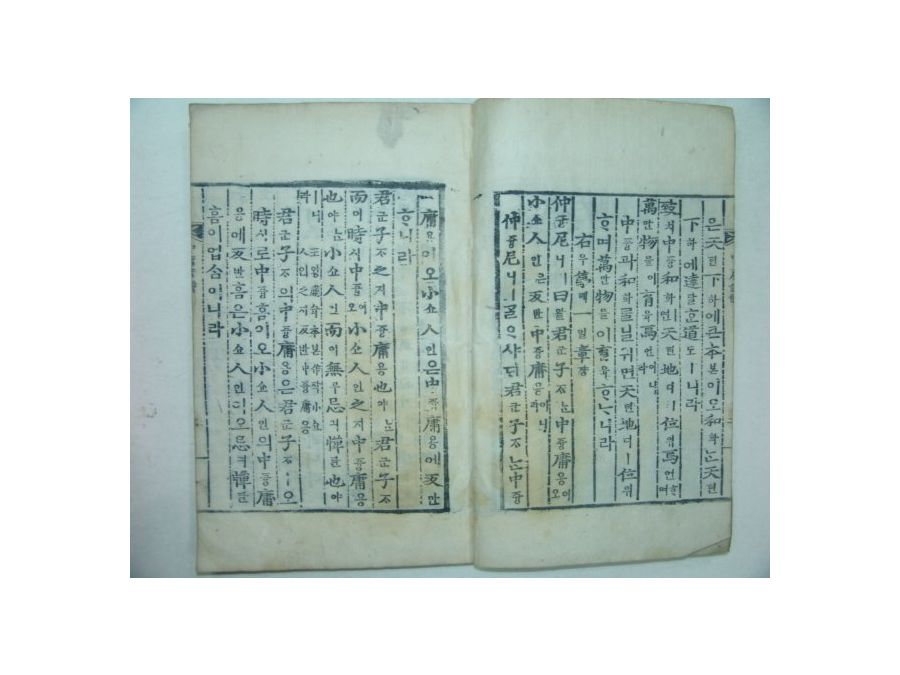 은天텬下하에큰本본이오和화ᄂᆞᆫ天텬
下하에達달ᄒᆞᆫ道도ㅣ니라
致치中듕和화ㅣ면天텬地디ㅣ位위焉언ᄒᆞ며
萬만物믈이育육焉언이니라
中듕과和화ᄅᆞᆯ닐위면天텬地디ㅣ位위
ᄒᆞ며萬만物믈이育육ᄒᆞᄂᆞ니라
右우第뎨一일章쟝
仲듕尼니ㅣ曰왈君군子ᄌᆞᄂᆞᆫ中듕庸용이오
小쇼人인은反반中듕庸용이니라
仲듕尼니ㅣᄀᆞᆯᄋᆞ샤ᄃᆡ君군子ᄌᆞᄂᆞᆫ中듕
庸용이오小쇼人인은中듕庸용에反반
ᄒᆞ니라
君군子ᄌᆞ之지中듕庸용也야ᄂᆞᆫ君군子ᄌᆞ
而이時시中듕이오小쇼人인之지中듕庸용
也야ᄂᆞᆫ小쇼人인而이無무忌긔憚탄也야
ㅣ니라 王왕肅슉本본作작小쇼人인之지反반中듕庸용
君군子ᄌᆞ의中듕庸용은君군子ᄌᆞㅣ오
時시로中듕홈이오小쇼人인의中듕庸
용에反반홈은小쇼人인이오忌긔憚탄
홈이업ᄉᆞᆷ이니라